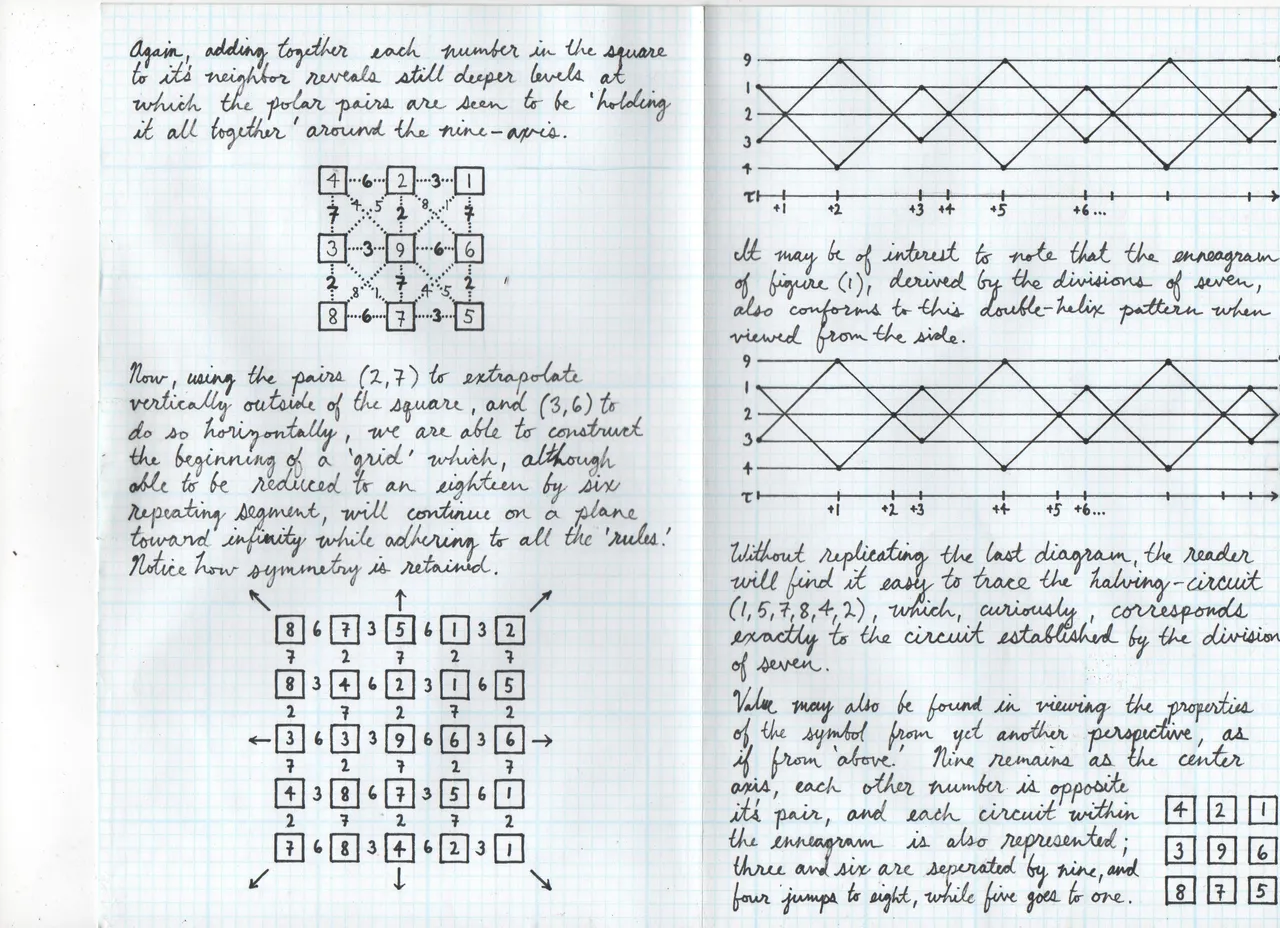 Again, adding together each number in the square
to it's neighbor reveals still deeper levels at
which the polar pairs are seen to be 'holding
it all together' around the nine-axis.
4 6 2 3 1
7 4 5 2 8 1 7
3 3 9 6 6
2 8 1 7 4 5 2
8 6 7 3 5
Now, using the pairs (2,7) to extrapolate
vertically outside of the square, and (3,6) to
do so horizontally, we are able to construct
the beginning of a 'grid' which, although
able to be reduced to an eighteen by six
repeating segment, will continue on a plane
toward infinity while adhering to all the 'rules.'
Notice how symmetry is retained.
8 6 7 3 5 6 1 3 2
7 2 7 2 7
8 3 4 6 2 3 1 6 5
2 7 2 7 2
3 6 3 3 9 6 6 3 6
7 2 7 2 7
4 3 8 6 7 3 5 6 1
2 7 2 7 2
7 6 8 3 4 6 2 3 1
9
1
2
3
4
τ
+1 +2 +3 +4 +5 +6...
It may be of interest to note that the enneagram
of figure (1), derived by the divisions of seven,
also conforms to this double-helix pattern when
viewed from the side.
9
1
2
3
4
τ
+1 +2 +3 +4 +5 +6...
Without replicating the last diagram, the reader
will find it easy to trace the halving-circuit
(1,5,7,8,4,2), which, curiously, corresponds
exactly to the circuit established by the division
of seven.
Value may also be found in viewing the properties
of the symbol from yet another perspective, as
if from 'above.' Nine remains as the center
axis, each other number is opposite
it's pair, and each circuit within
the enneagram is also represented;
three and six are seperated by nine, and
four jumps to eight, while five goes to one.
4 2 1
3 9 6
8 7 5